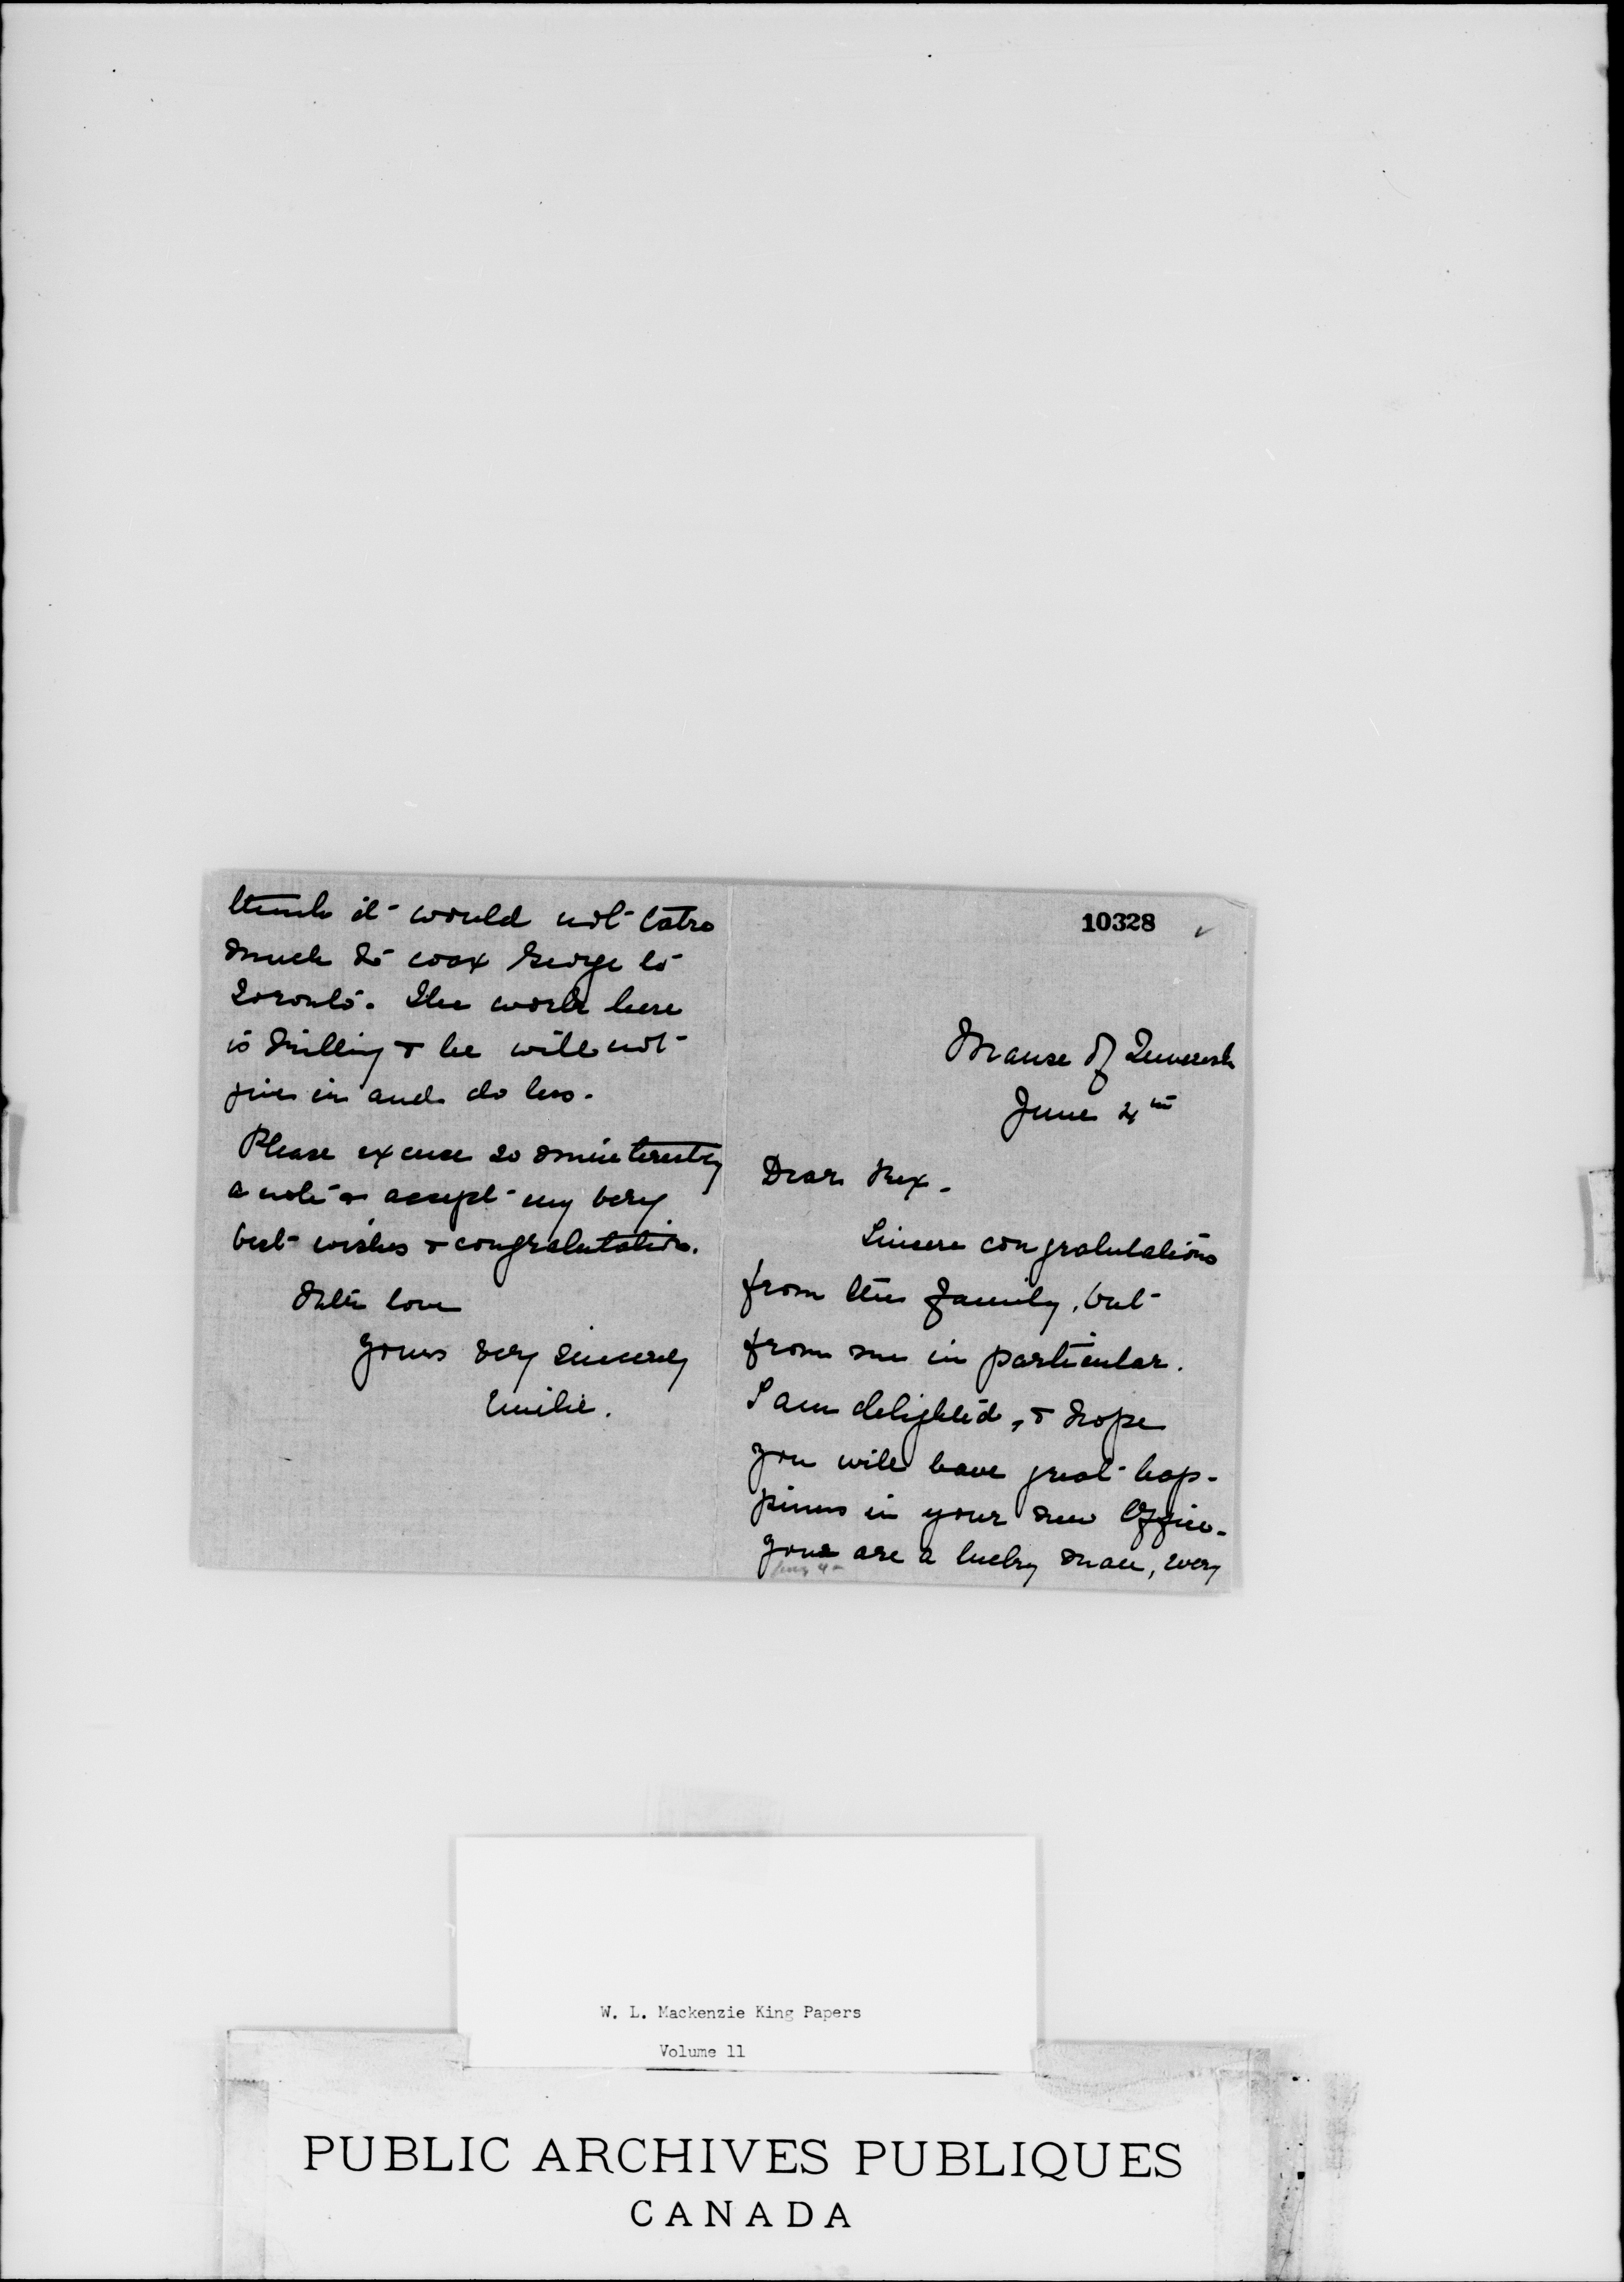 10328
Manse of Queruresh
June 4th
Dear Rex.
Sincere congratulations
from the family, but
from me in particular.
I am delighted, & hope
you will have great hap-
piness in your new Office.
You are a lucky man, very
think it would not take
much to coax George to
Toronto. The work here
is killing & he will not
give in and do less.
Please excuse so uninteresting
a note & accept my very
best wishes & congratulation.
With love
Yours very sincerely
Emilie.
W. L. Mackenzie King Papers
Volume 11
PUBLIC ARCHIVES PUBLIQUES
CANADA